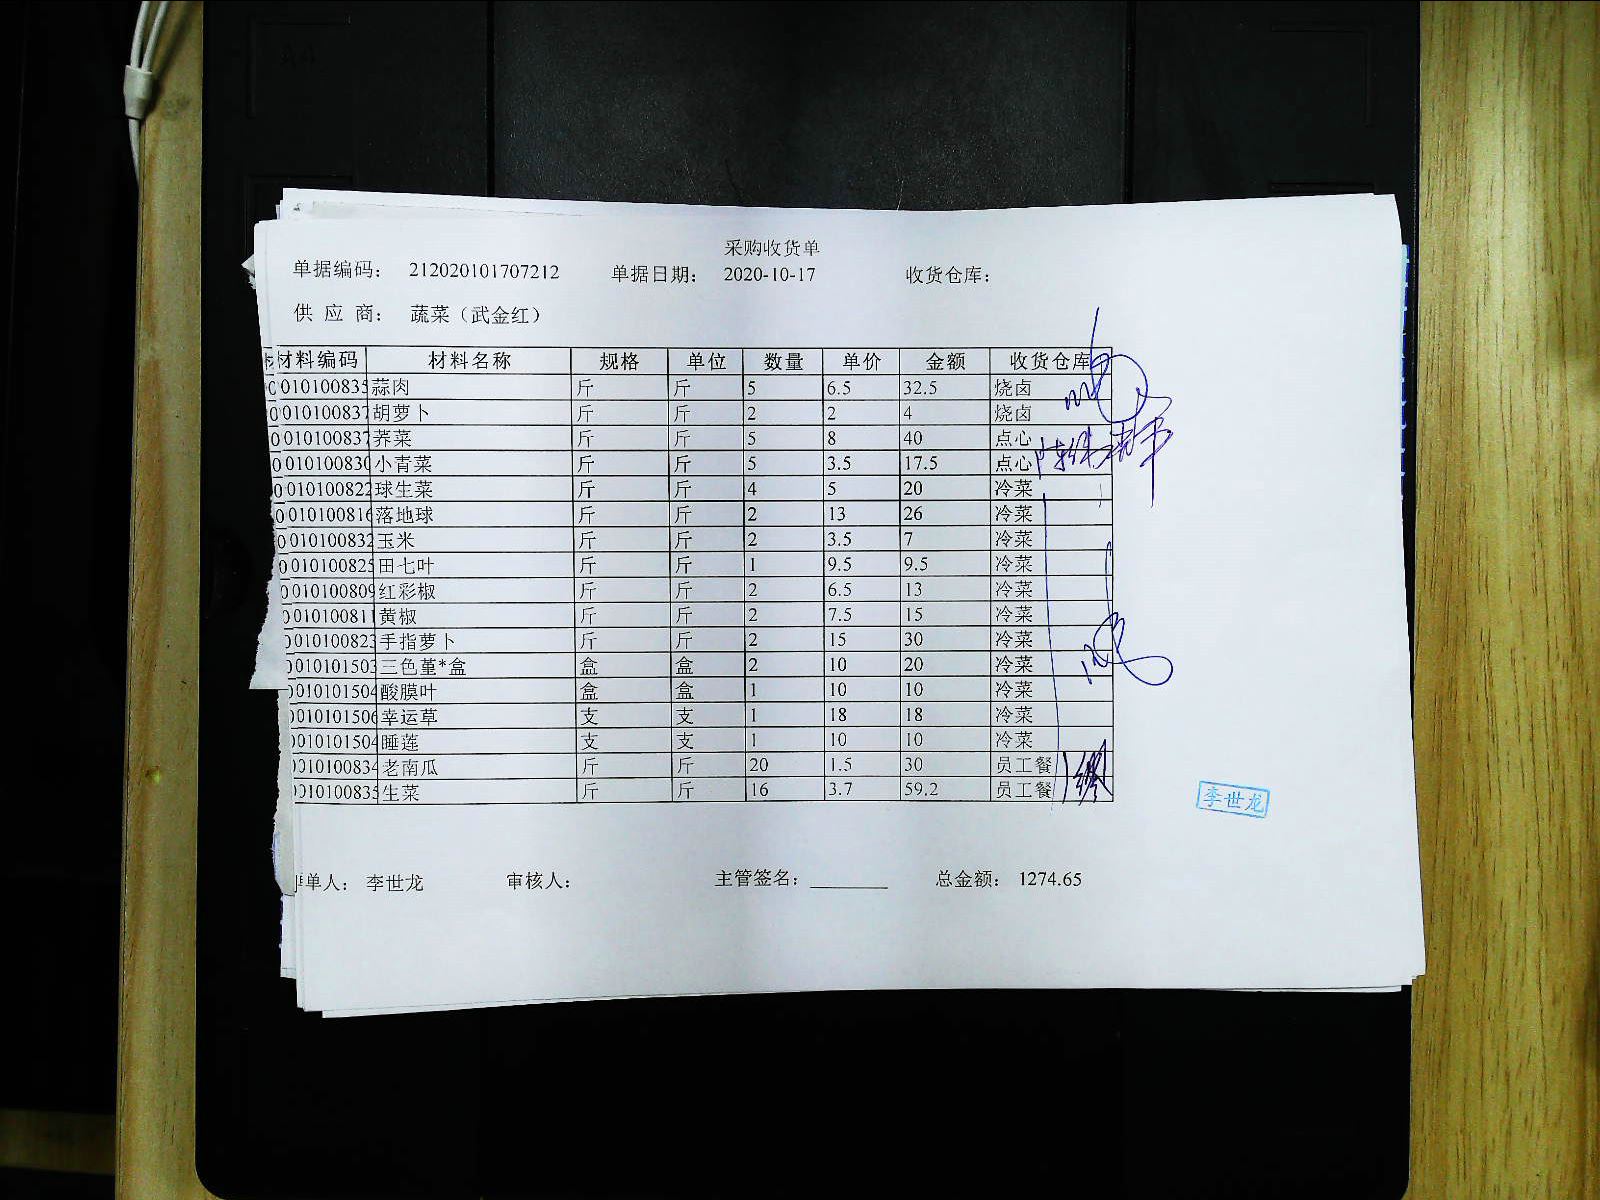 采购收货单
单据编码： 212020101707212 单据日期： 2020-10-17 收货仓库：
供 应 商： 蔬菜（武金红）
材料编码 材料名称 规格 单位 数量 单价 金额 收货仓库
010100835 蒜肉 斤 斤 5 6.5 32.5 烧卤
010100837 胡萝卜 斤 斤 2 2 4 烧卤
010100837 荞菜 斤 斤 5 8 40 点心
010100830 小青菜 斤 斤 5 3.5 17.5 点心
010100822 球生菜 斤 斤 4 5 20 冷菜
010100816 落地球 斤 斤 2 13 26 冷菜
010100832 玉米 斤 斤 2 3.5 7 冷菜
010100825 田七叶 斤 斤 1 9.5 9.5 冷菜
010100809 红彩椒 斤 斤 2 6.5 13 冷菜
010100811 黄椒 斤 斤 2 7.5 15 冷菜
010100823 手指萝卜 斤 斤 2 15 30 冷菜
010101503 三色堇*盒 盒 盒 2 10 20 冷菜
010101504 酸膜叶 盒 盒 1 10 10 冷菜
010101506 幸运草 支 支 1 18 18 冷菜
010101504 睡莲 支 支 1 10 10 冷菜
010100834 老南瓜 斤 斤 20 1.5 30 员工餐
010100835 生菜 斤 斤 16 3.7 59.2 员工餐
李世龙
单人： 李世龙 审核人： 主管签名： 总金额： 1274.65